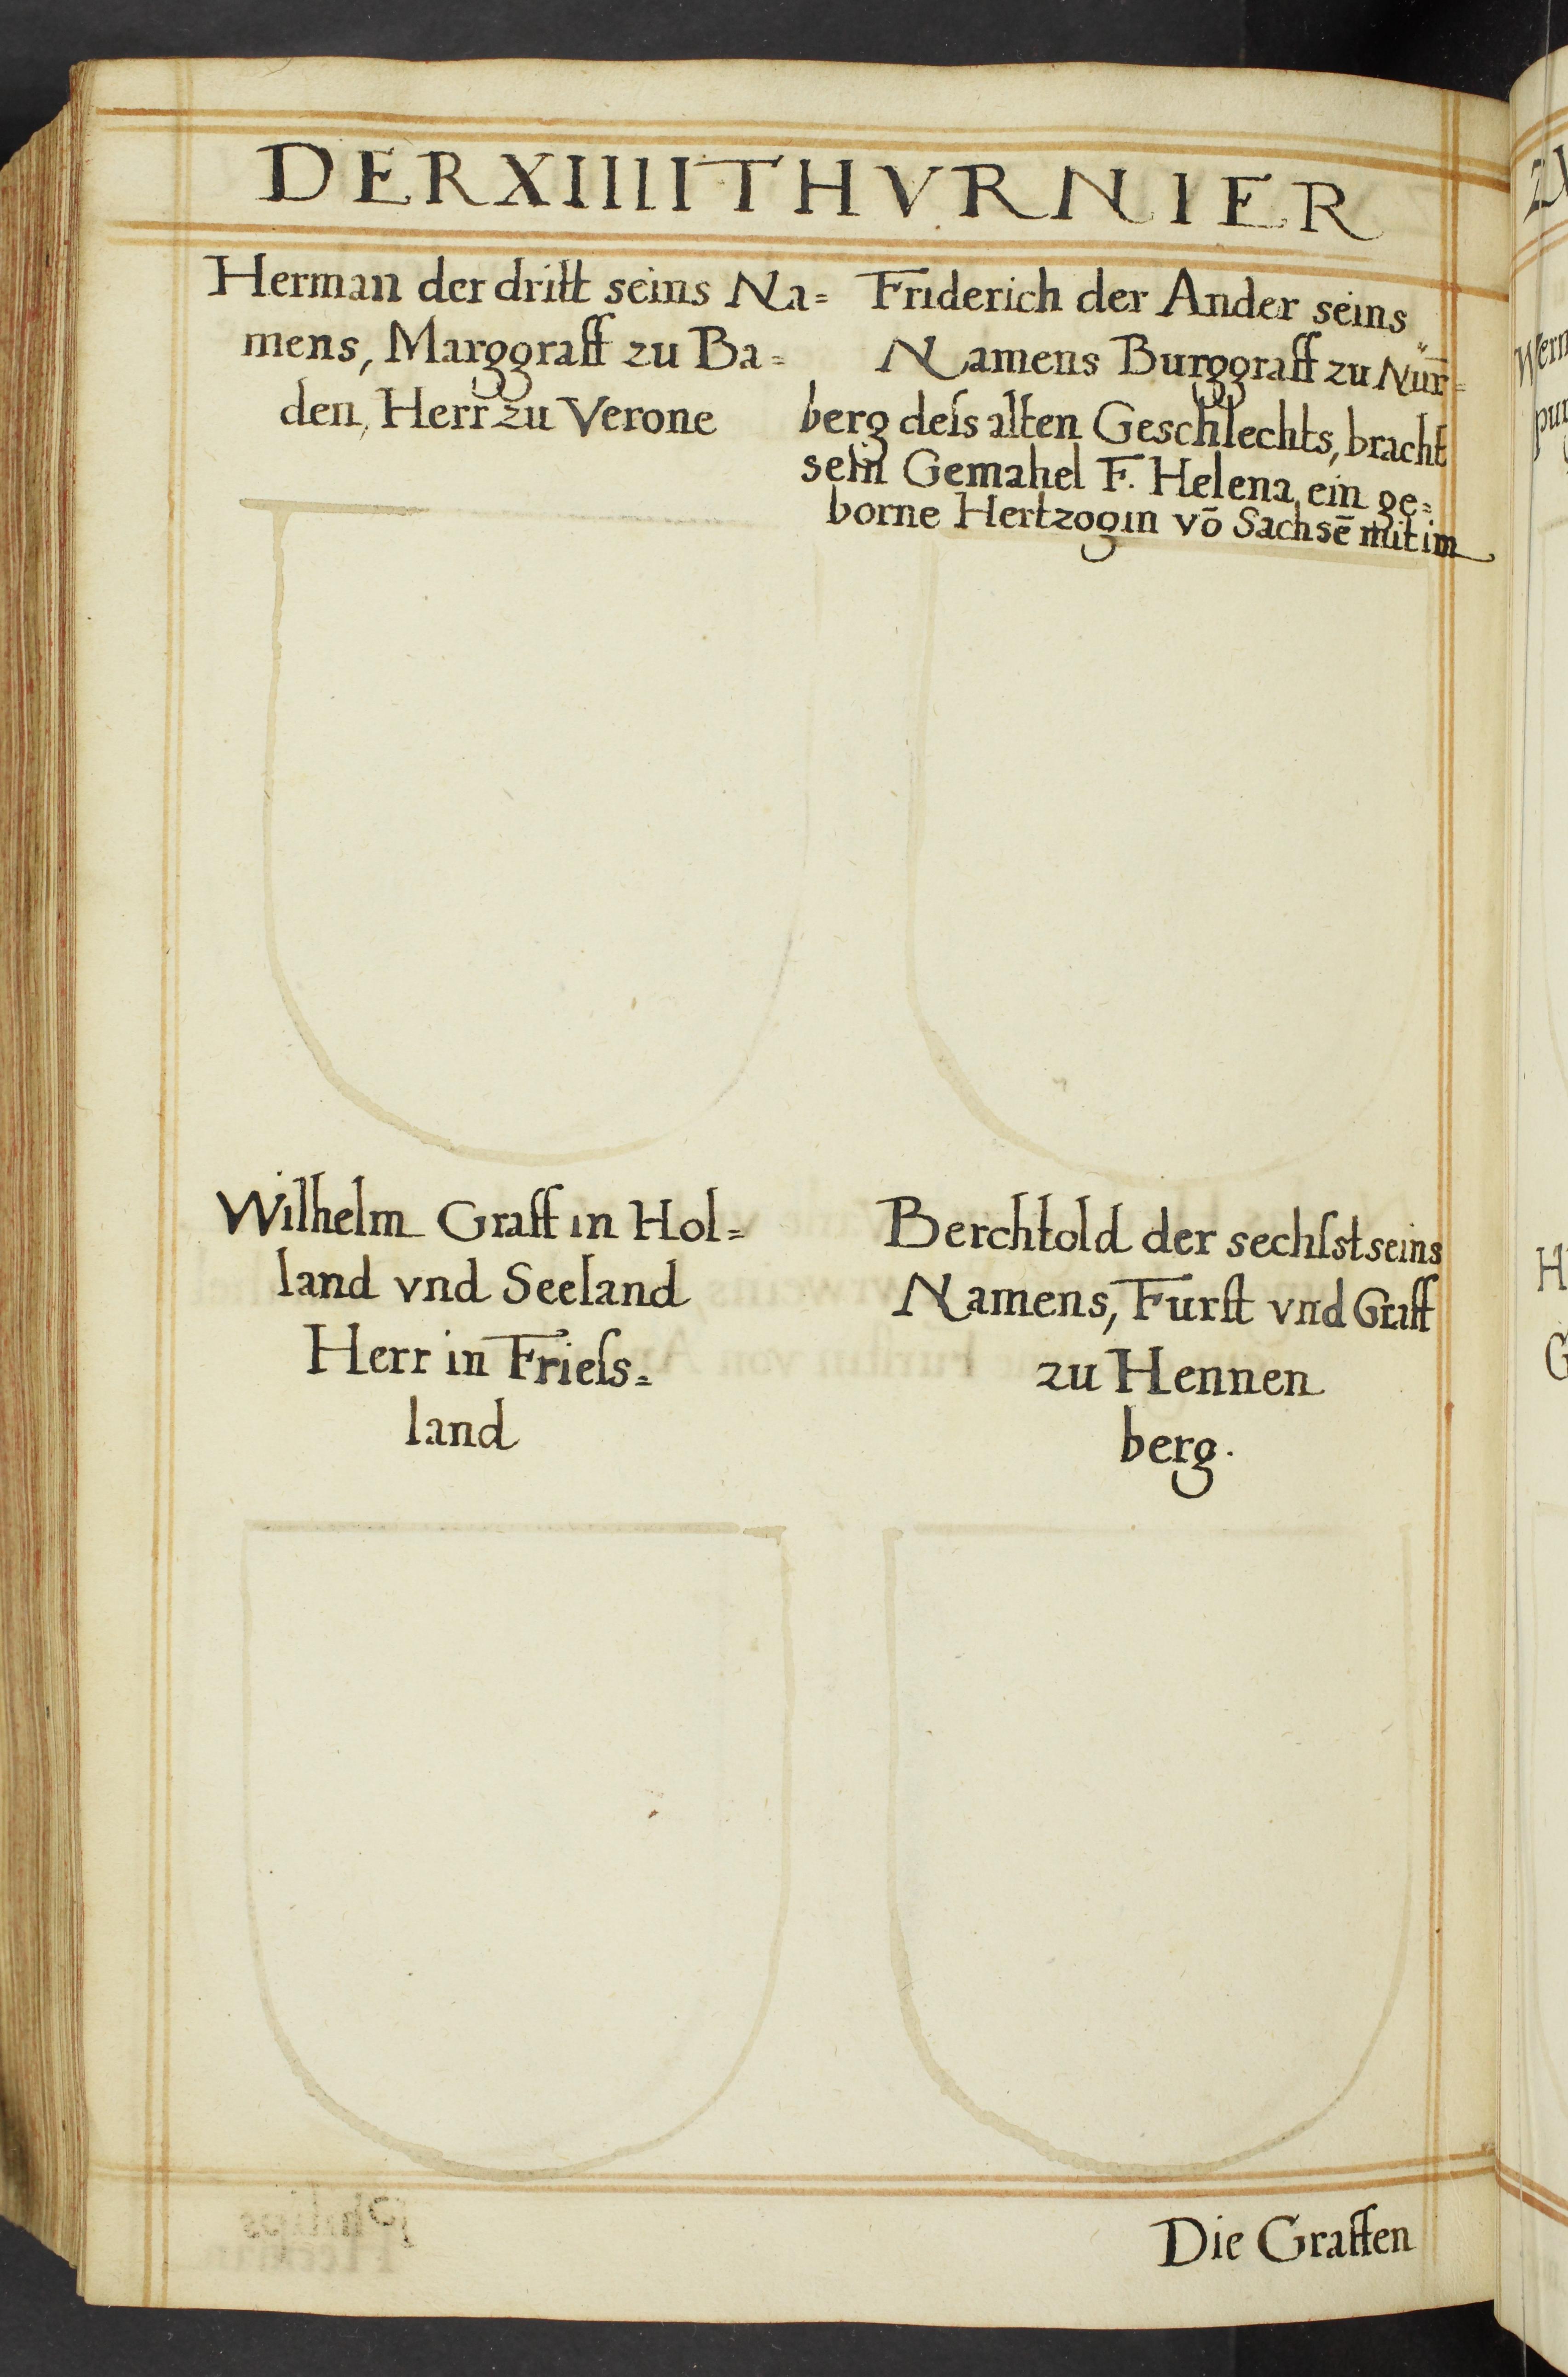 DER XIIII THVRNIER
Herman der dritt seins Na=
mens, Marggraff zu Ba=
den, Herr zu Verone
Friderich der Ander seins
Namens Burggraff zu Nür̄=
berg deſs alten Geschlechts, bracht
sein Gemahel F. Helena ein ge=
borne Hertzogin vō Sachsē mit im
Wilhelm Graff in Hol=
land vnd Seeland
Herr in Frieſs=
land
Berchtold der sechſst seins
Namens, Furſt vnd Graff
zu Hennen
berg.
Die Graffen